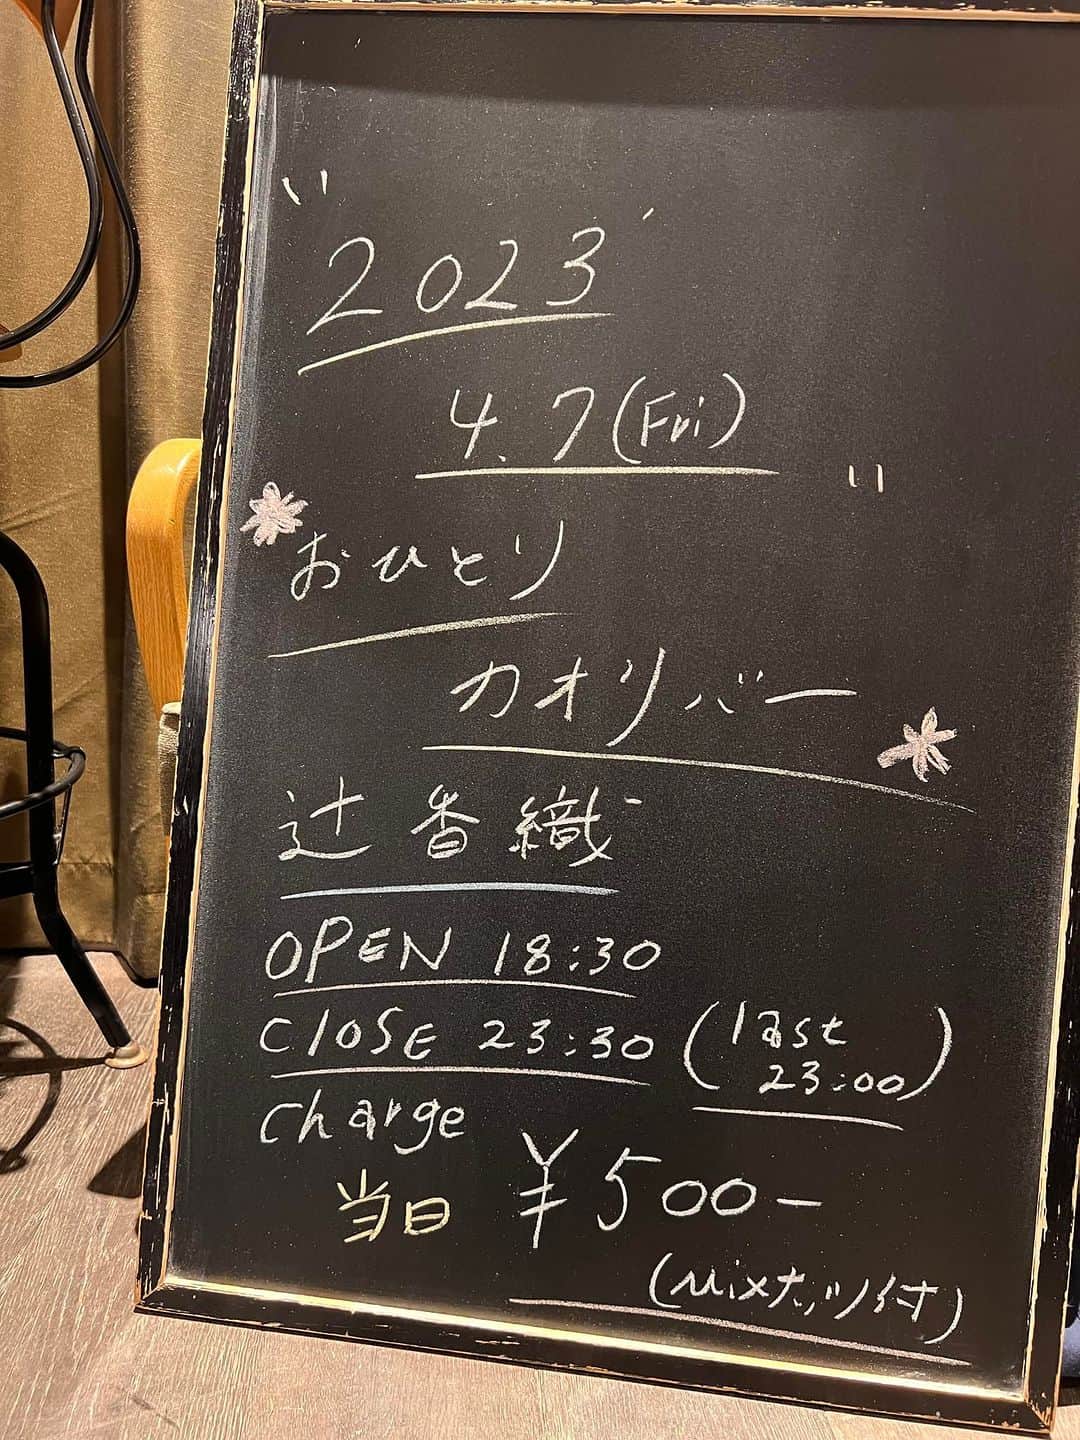 2023
4.7(Fri)
おひとり
カオリバー
辻 香織
OPEN 18:30
CLOSE 23:30 (last 23:00)
charge
当日 ¥500-
(Mixナッツ付)